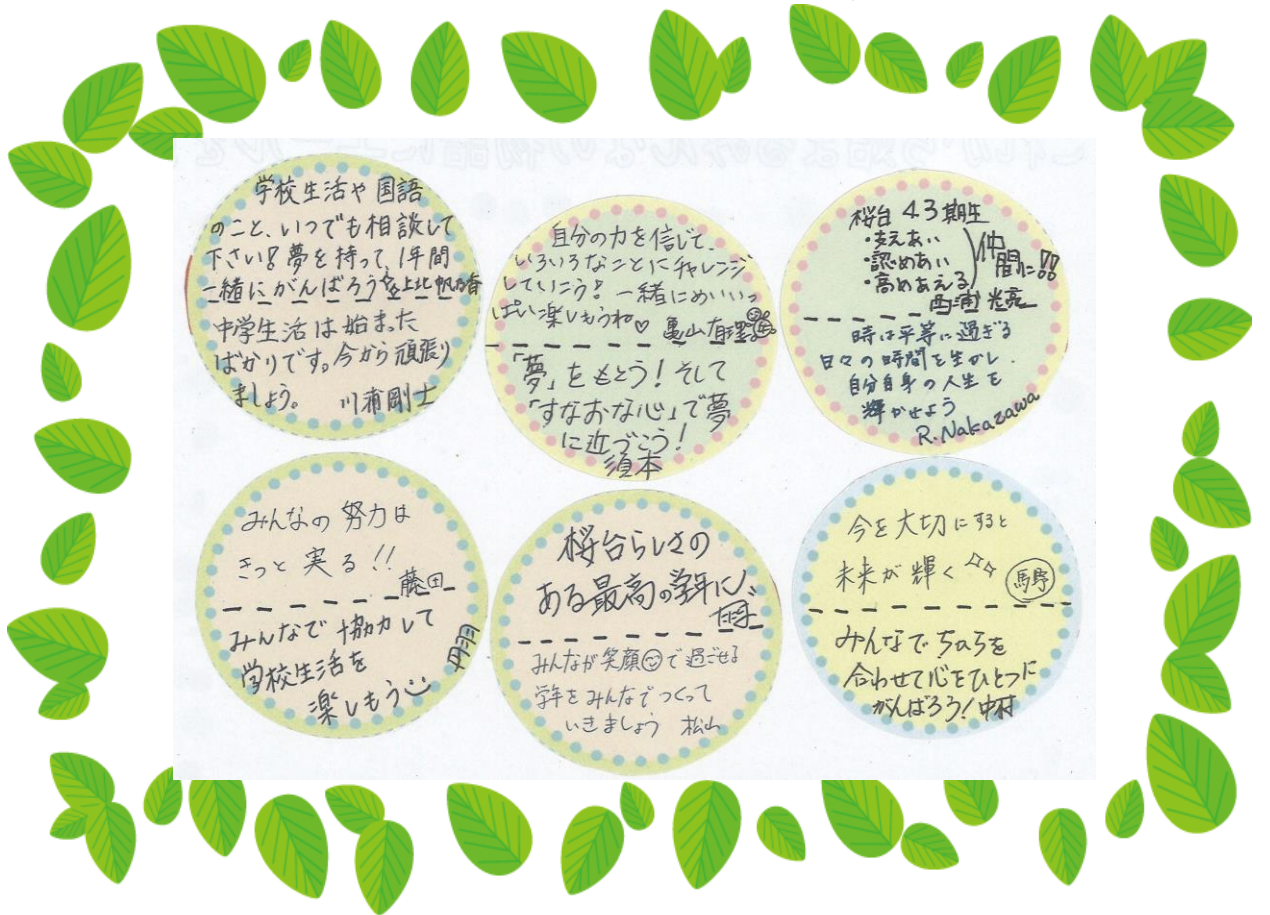 学校生活や国語
のこと、いつでも相談して
下さい!夢を持って、1年間
一緒にがんばろう 上北帆乃香
中学生活は始まった
ばかりです。今から頑張り
ましょう。 川浦剛士
自分の力を信じて、
いろいろなことにチャレンジ
していこう! 一緒にめいいっ
ぱい楽しもうね♡ 亀山有理
「夢」をもとう!そして
「すなおな心」で夢
に近づこう!
須本
桜台43期生
・支えあい
・認めあい
・高めあえる
仲間に!!
西浦 光亮
時は平等に過ぎる
日々の時間を生かし、
自分自身の人生を
輝かせよう
R.Nakazawa
みんなの努力は
きっと実る!!
藤田
みんなで協力して
学校生活を
楽しもう
丹羽
桜台らしさの
ある最高の学年に!
みんなが笑顔で過ごせる
学年をみんなでつくって
いきましょう 松山
今を大切にすると
未来が輝く
馬野
みんなでちからを
合わせて心をひとつに
がんばろう!中村